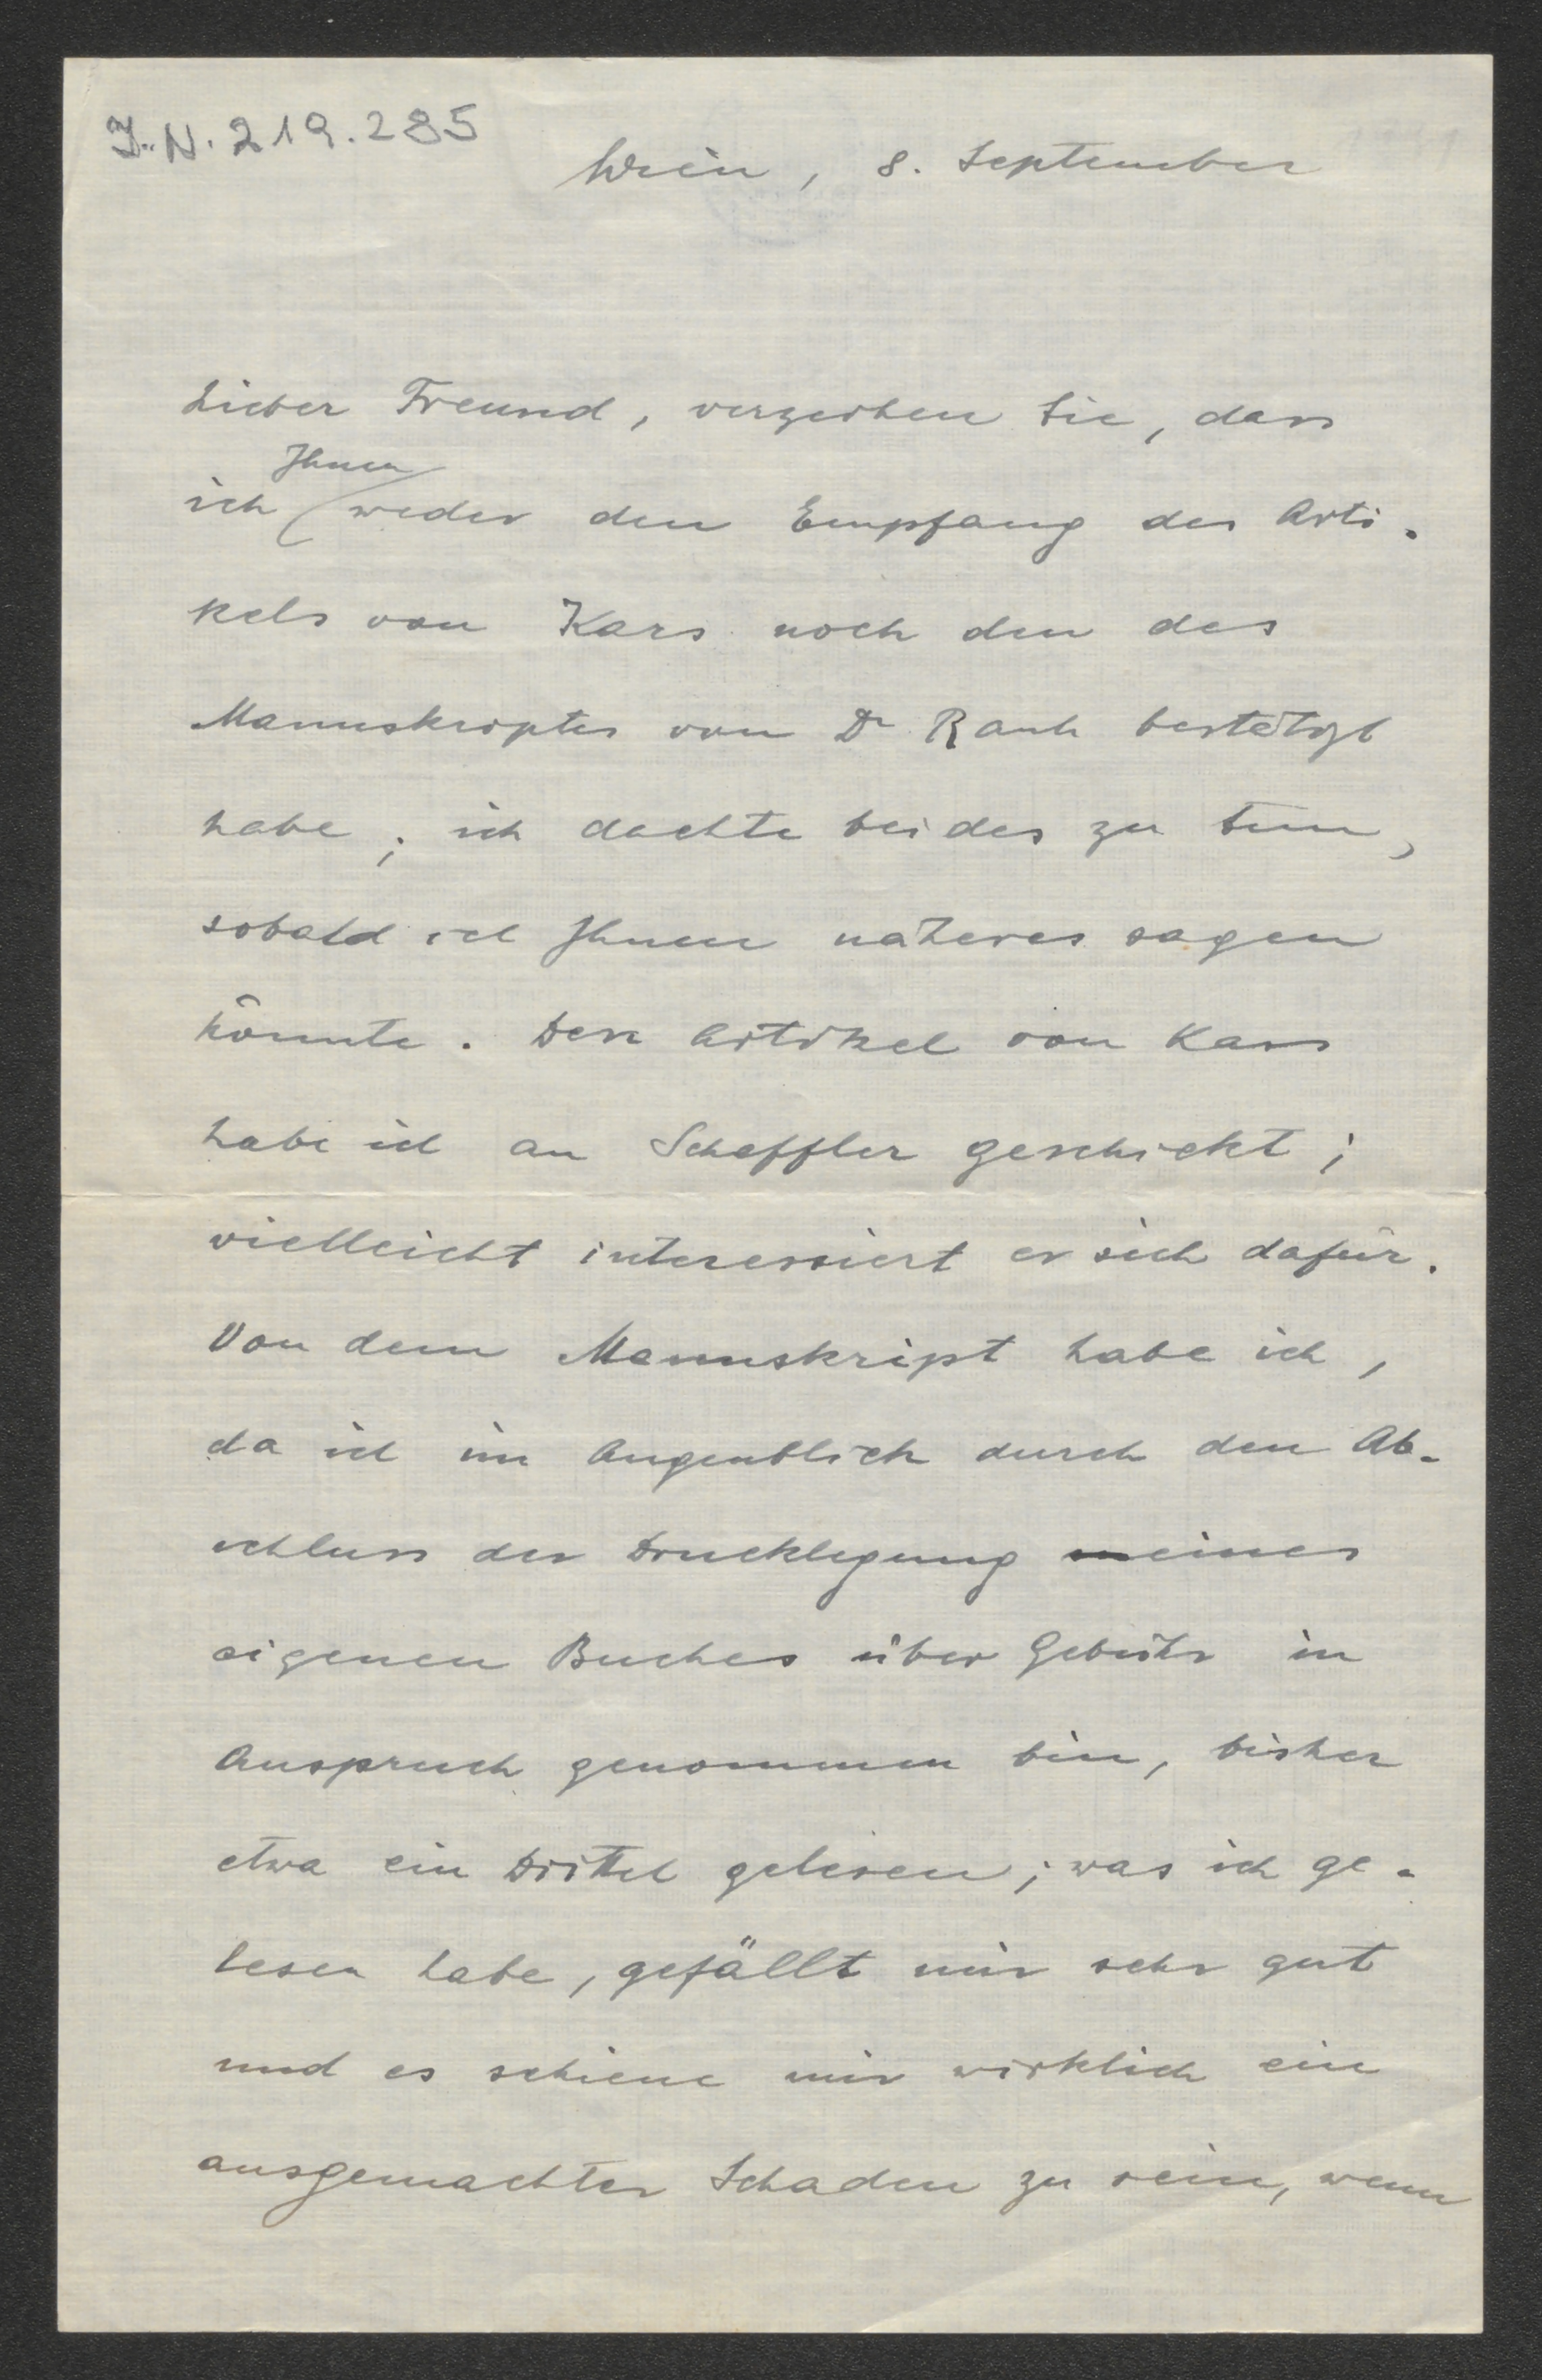 I.N. 219.285
Wien, 8. September
Lieber Freund, verzeihen Sie, dass
Ihnen
ich weder den Empfang des Arti-
kels von Kars noch den des
Manuskriptes von Dr Rauh bestätigt
habe; ich dachte beides zu tun,
sobald ich Ihnen näheres sagen
könnte. Den Artikel von Kars
habe ich an Scheffler geschickt;
vielleicht interessiert er sich dafür.
Von dem Manuskript habe ich,
da ich im Augenblick durch den Ab-
schluss der Drucklegung meines
eigenen Buches über Gebühr in
Anspruch genommen bin, bisher
etwa ein Drittel gelesen; was ich ge-
lesen habe, gefällt mir sehr gut
und es schiene mir wirklich ein
ausgemachter Schaden zu sein, wenn